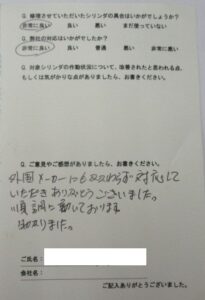 Q. 修理させていただいたシリンダの具合はいかがでしょうか?
非常に良い 良い 悪い まだ使っていない
Q. 弊社の対応はいかがでしたか?
非常に良い 良い 普通 悪い 非常に悪い
Q. 対象シリンダの作動状況について、改善されたと思われる点、
もしくは気がかりな点がありましたら、お書きください。
Q. ご意見やご感想がありましたら、お書きください。
外国メーカーにもかかわらず対応して
いただきありがとうございました。
順調に動いております
助かりました。
ご氏名:
会社名:
ご記入ありがとうございました。